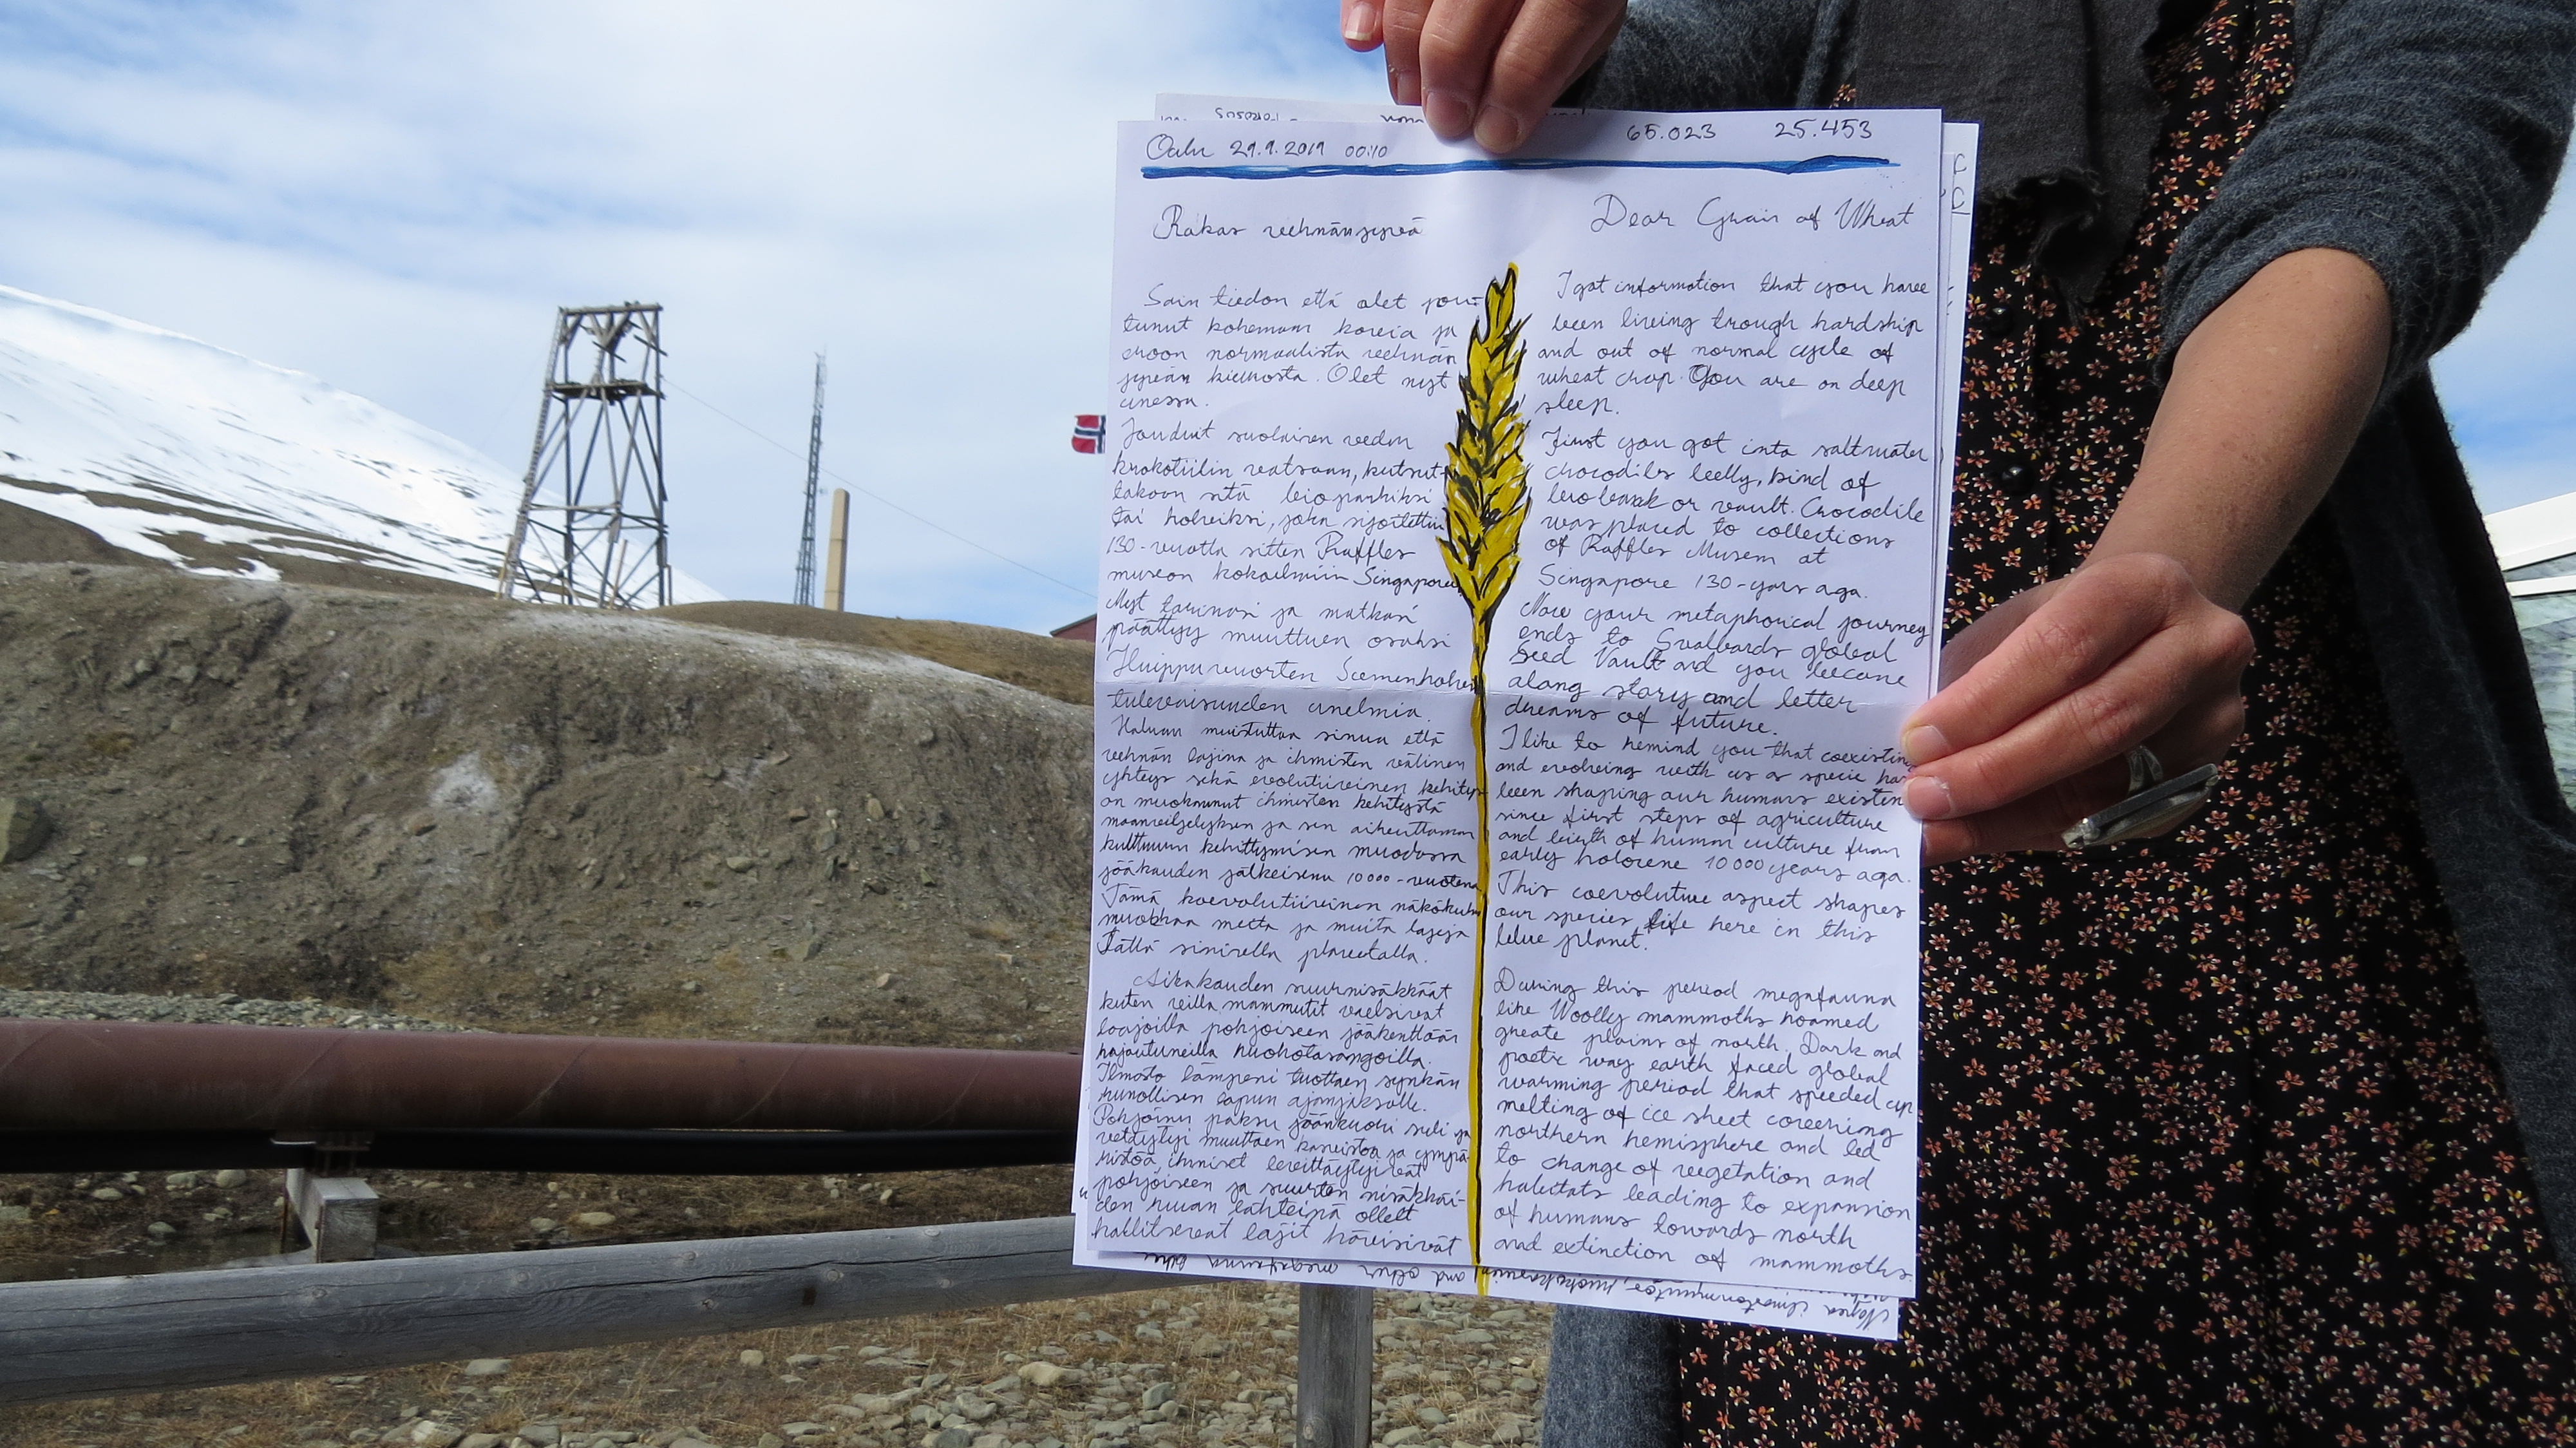 Oulu 29.9.2019 00:10 65.023 25.453
Rakas vehnänjyvä
Sain tiedon että olet jou-
tunut kokemaan kovia ja
eroon normaalista vehnän
jyvän kierrosta. Olet nyt
unessa.
Jouduit suolaisen veden
krokotiilin vatsaan, kutsut-
takoon sitä biopankiksi
tai holviksi, joka sijoitettiin
130-vuotta sitten Raffles
museon kokoelmiin Singapore
Nyt tarinasi ja matkasi
päättyy muuttuen osaksi
Huippuvuorten Siemenholvin
tulevaisuuden unelmia.
Haluan muistuttaa sinua että
vehnän lajina ja ihmisten välinen
yhteys sekä evolutiivinen kehitys
on muokannut ihmisten kehitystä
maanviljelyksen ja sen aiheuttaman
kulttuurin kehittymisen muodossa
jääkauden jälkeisenä 10000-vuotena
Tämä koevolutiivinen näkökulma
muokkaa meitä ja muita lajeja
Tällä sinisellä planeetalla.
Aikakauden suurnisäkkäät
kuten villamammutit vaelsivat
laajoilla pohjoiseen jääkenttään
rajautuneilla ruohotasangoilla.
Ilmasto lämpeni tuottaen synkän
runollisen lopun ajanjaksolle.
Pohjoinen paksu jäänkuori suli ja
vetäytyi muuttaen kasvistoa ja ympä-
ristöä, ihmiset levittäytyivät
pohjoiseen ja suurten nisäkkäi-
den ruuan lähteinä olleet
hallitsevat lajit hävisivät
Dear Grain of Wheat
I got information that you have
been living trough hardship
and out of normal cycle of
wheat crop. You are on deep
sleep.
First you got into saltwater
crocodiles belly, kind of
biobank or vault. Crocodile
was placed to collections
of Raffles Musem at
Singapore 130-years ago.
Now your metaphorical journey
ends to Svalbards global
Seed Vault and you become
along story and letter
dreams of future.
I like to remind you that coexisting
and evolving with us as specie has
been shaping our humans existen
since first steps of agriculture
and birth of human culture from
early holocene 10000 years ago.
This coevolutive aspect shapes
our species life here in this
blue planet.
During this period megafauna
like Woolly mammoths roamed
greate plains of north. Dark and
poetic way earth faced global
warming period that speeded up
melting of ice sheet covering
northern hemisphere and led
to change of vegetation and
habitats leading to expansion
of humans towards north
and extinction of mammoths.
and other megafauna like